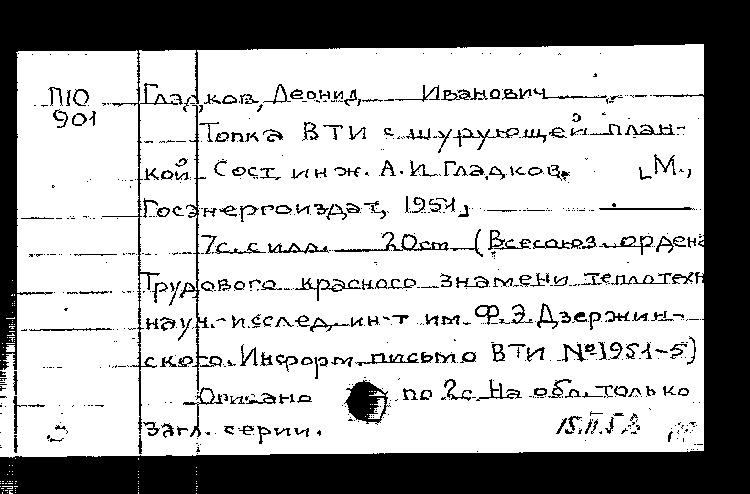 П10 Гладков, Леонид Иванович
901
Топка ВТИ с шурующей план-
кой. Сост. инж. А.И. Гладков. [М.,
Госэнергоиздат, 1951]
7с. с илл. 20см. (Всесоюз. ордена
Трудового красного знамени теплотехн
науч.-исслед. ин-т им. Ф.Э. Дзержин-
ского. Информ. письмо ВТИ №1951-5)
Описано по 2с. На обл. только
загл. серии. 15.II.52